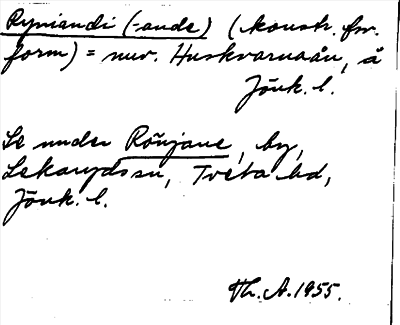 Ryniandi (-ande) (konstr. fsv.
form) = nuv. Huskvarnaån, å
Jönk. l.
Se under Rōnjane, by,
Lekaryds sn, Tveta hd,
Jönk. l.
Th. A. 1955.